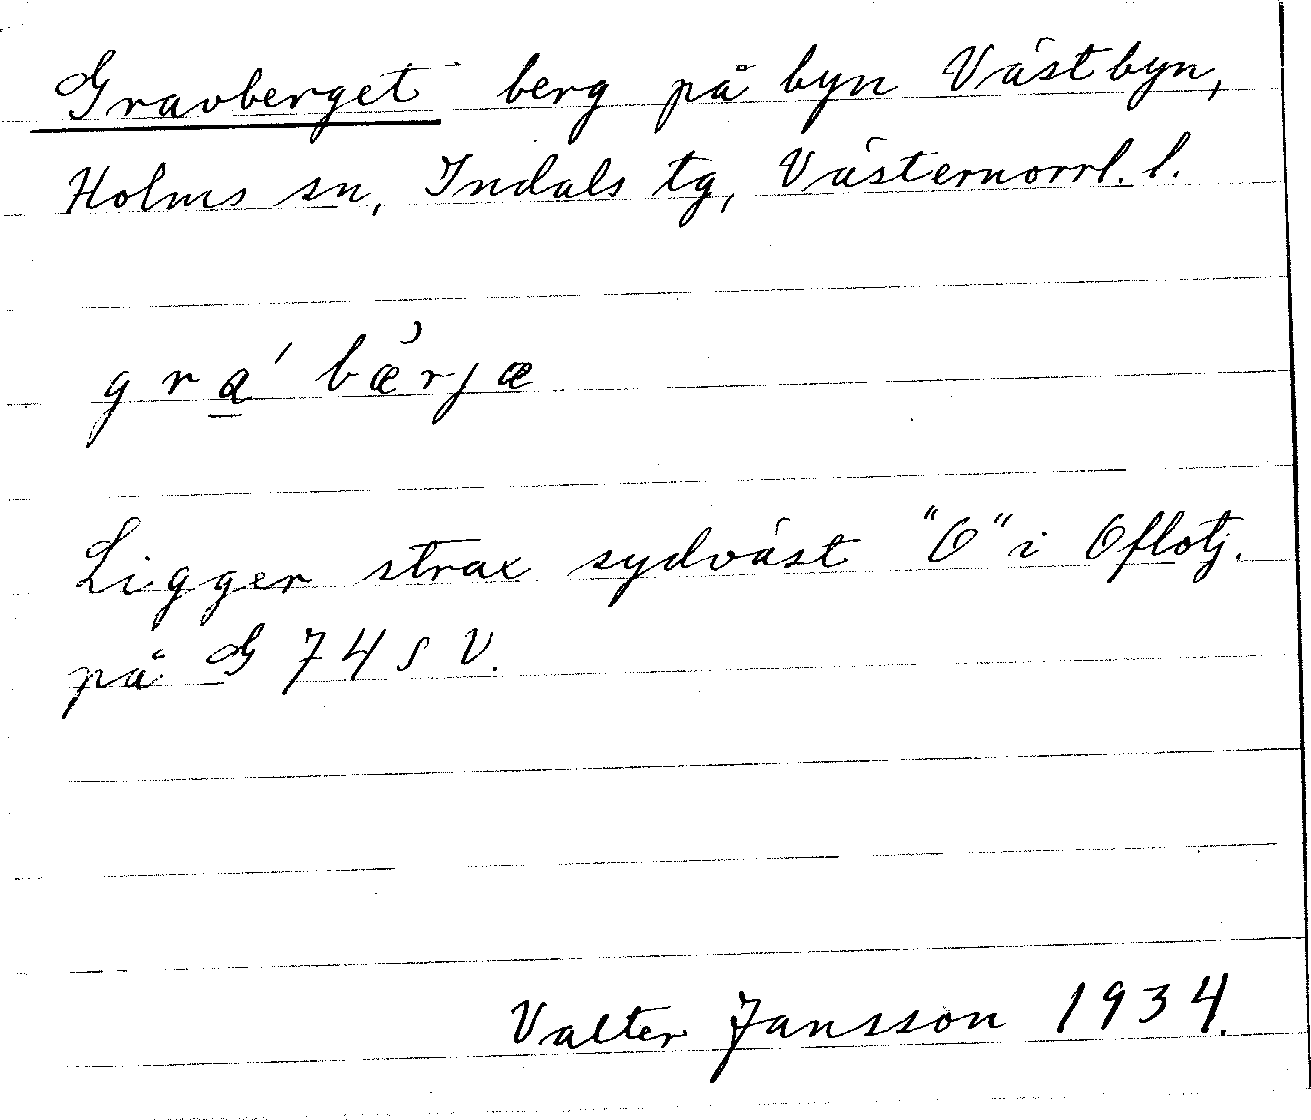 Gravberget berg på byn Västbyn,
Holms sn, Indals tg, Västernorrl. l.
gra̲ ́ bæ̉rjæ
Ligger strax sydväst "O" i Oflotj.
på G 74 S V.
Valter Jansson 1934.